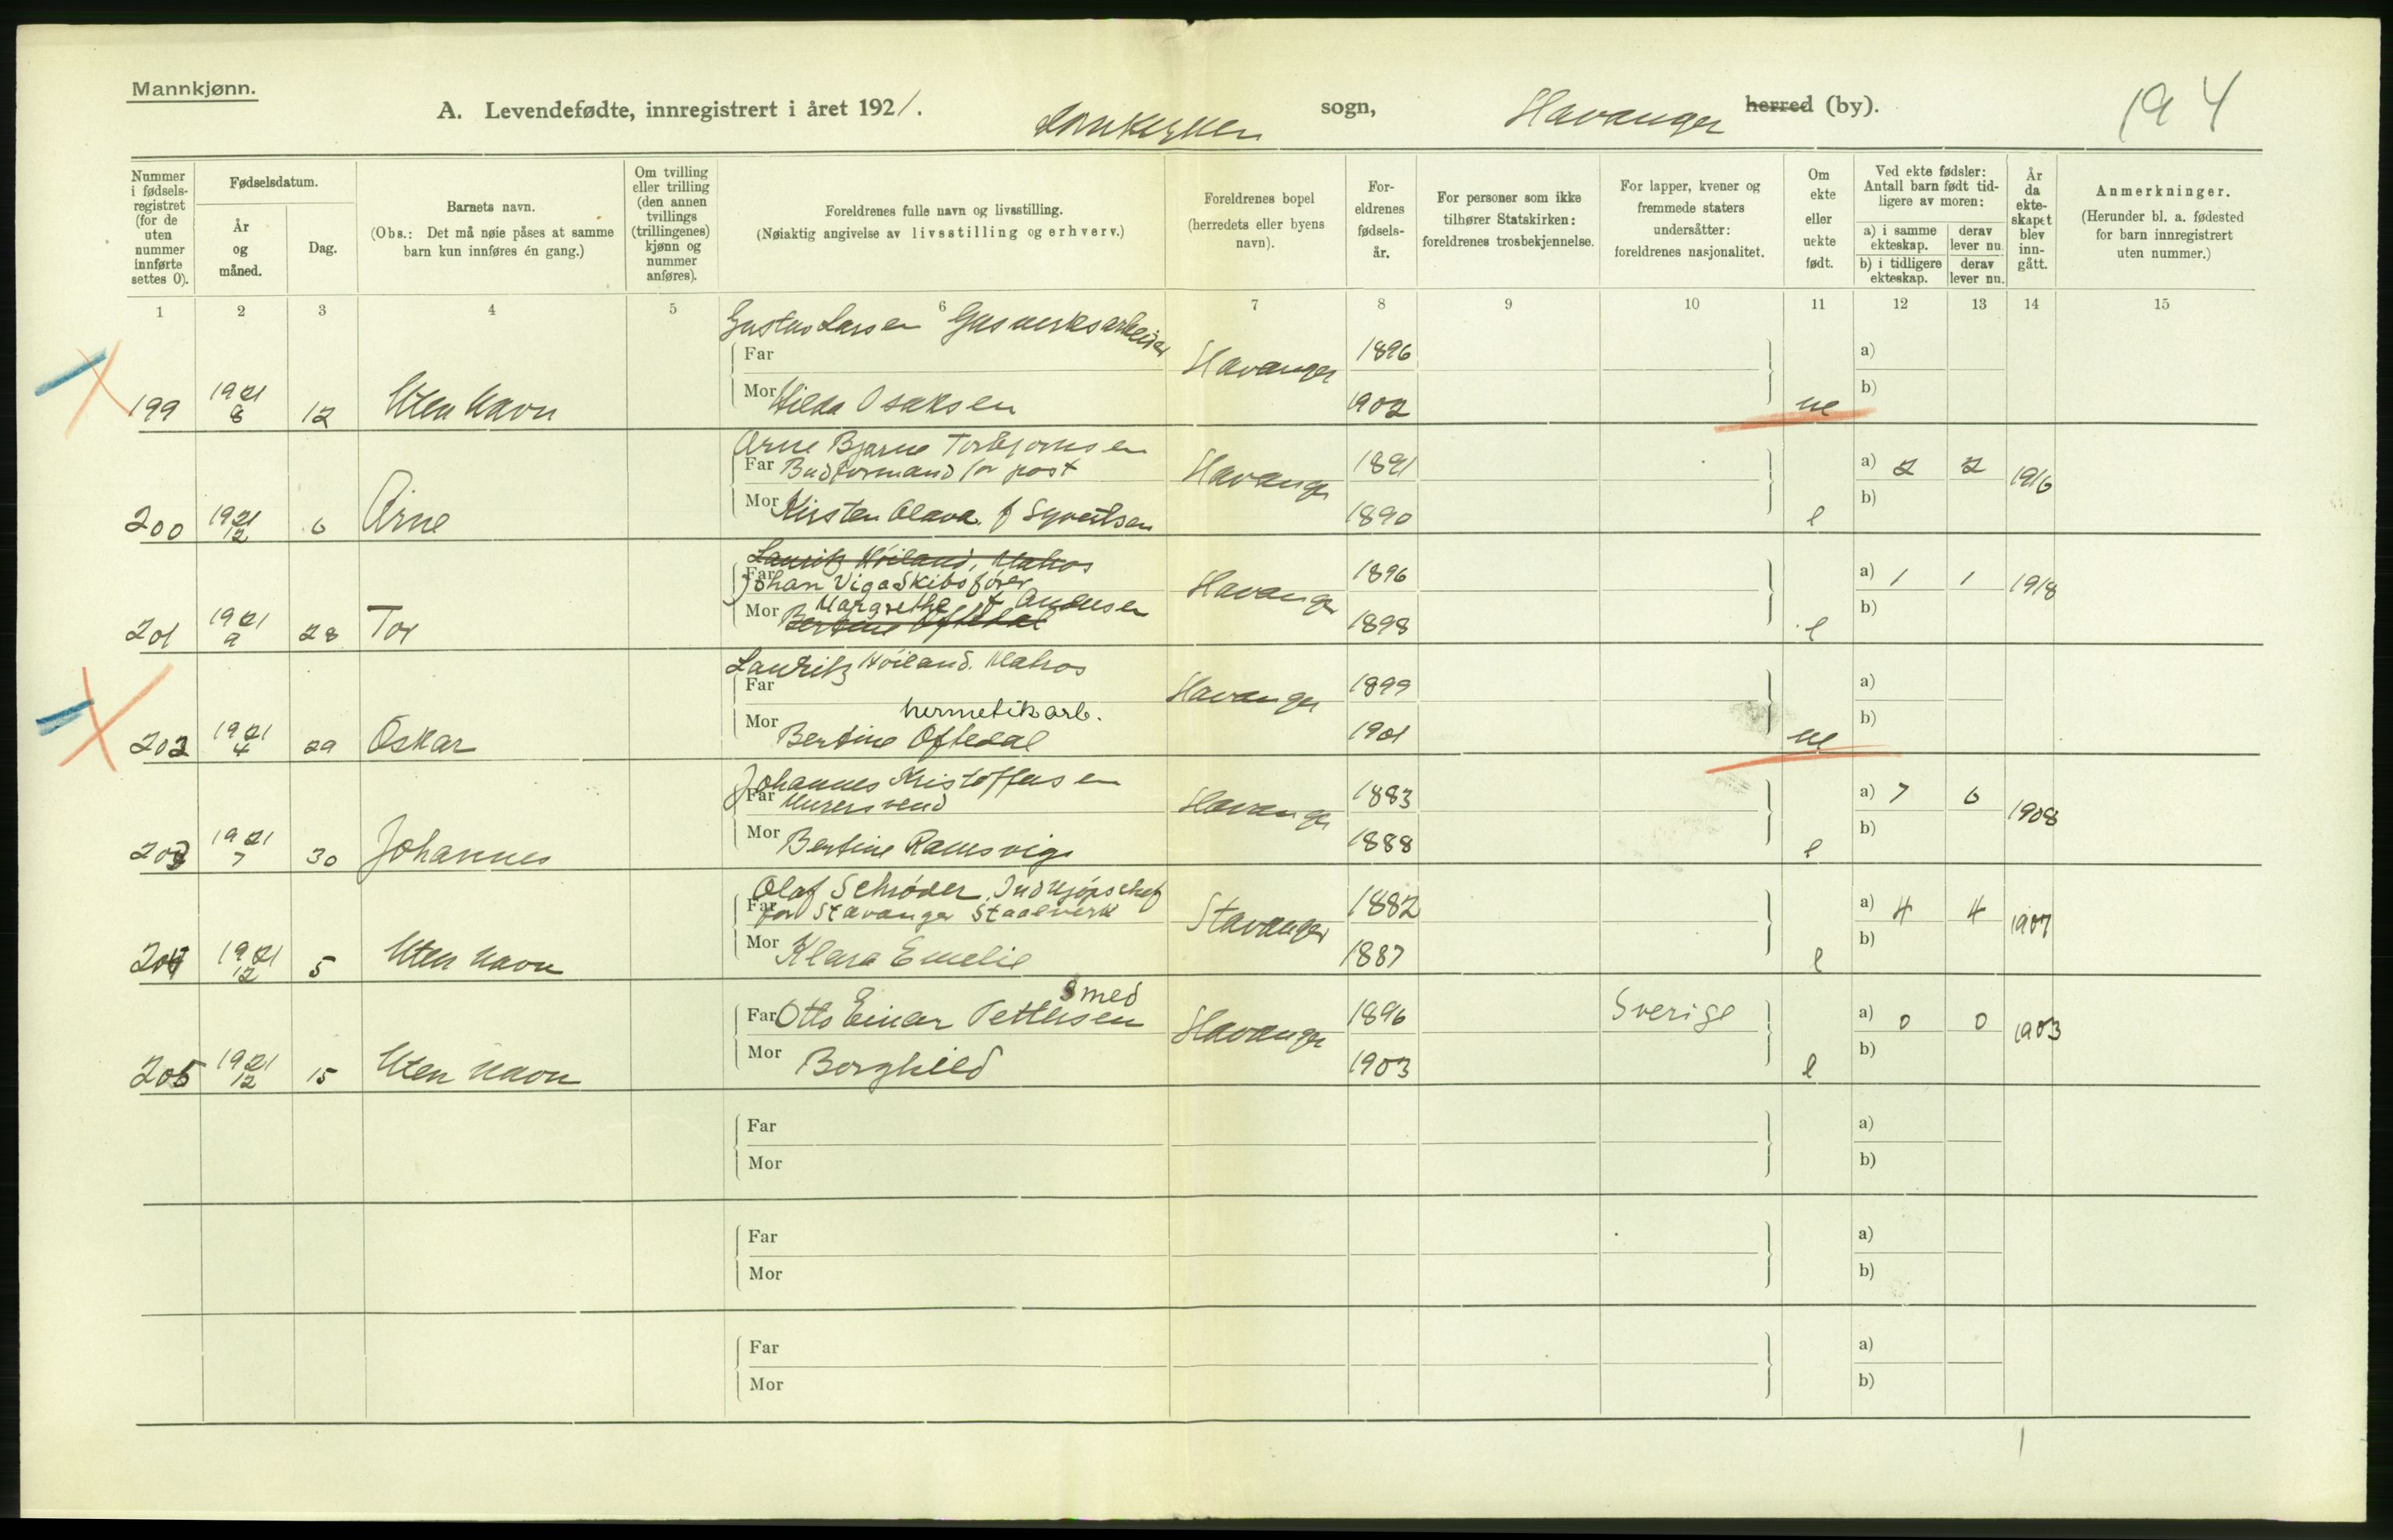 Mannkjønn.
A. Levendefødte, innregistrert i året 1921. Domkirken sogn, Stavanger herred (by). 194
Nummer i fødsels-registret (for de uten nummer innførte settes 0).
Fødselsdatum.
År og måned.
Dag.
Barnets navn.
(Obs.: Det må nøie påses at samme barn kun innføres én gang.)
Om tvilling eller trilling (den annen tvillings (trillingenes) kjønn og nummer anføres).
Foreldrenes fulle navn og livsstilling.
(Nøiaktig angivelse av livsstilling og erhverv.)
Foreldrenes bopel (herredets eller byens navn).
For-eldrenes fødsels-år.
For personer som ikke tilhører Statskirken: foreldrenes trosbekjennelse.
For lapper, kvener og fremmede staters undersåtter: foreldrenes nasjonalitet.
Om ekte eller uekte født.
Ved ekte fødsler: Antall barn født tid-ligere av moren:
a) i samme ekteskap. derav lever nu.
b) i tidligere ekteskap. derav lever nu.
År da ekte-skapet blev inn-gått.
Anmerkninger.
(Herunder bl. a. fødested for barn innregistrert uten nummer.)
1 2 3 4 5 6 7 8 9 10 11 12 13 14 15
Gustav Larsen Gasverksarbeider
Far Stavanger 1896 a)
199 1921 8 12 Uten navn Mor Hilda Isaksen 1902 ue b)
Arne Bjarne Torbjørnsen
Far Budformand for post Stavanger 1891 a) 2 2 1916
200 1921 12 6 Arne Mor Kirsten Olava f Syvertsen 1890 e b)
Lauritz Höiland, Matros
Far Johan Viga Skibsfører Stavanger 1896 a) 1 1 1918
201 1921 9 28 Tor Mor Margrethe f Andersen 1898 e b)
Bertine Oftedal
Lauritz Höiland. Matros
Far Stavanger 1899 a)
hermetikarb.
202 1921 4 29 Oskar Mor Bertine Oftedal 1901 ue b)
Johannes Kristoffersen
Far Murersvend Stavanger 1883 a) 7 6 1908
203 1921 7 30 Johannes Mor Bertine Ramsvig 1888 e b)
Olaf Schrøder, Indkjøpschef
Far for Stavanger Staalverk Stavanger 1882 a) 4 4 1907
204 1921 12 5 Uten navn Mor Klara Emelie 1887 e b)
Smed
Far Otto Einar Pettersen Stavanger 1896 Sverige a) 0 0 1903
205 1921 12 15 Uten navn Mor Borghild 1903 e b)
Far a)
Mor b)
Far a)
Mor b)
Far a)
Mor b)